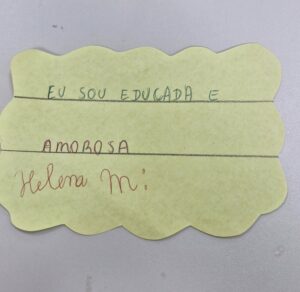 EU SOU EDUCADA E
AMOROSA
Helena M: